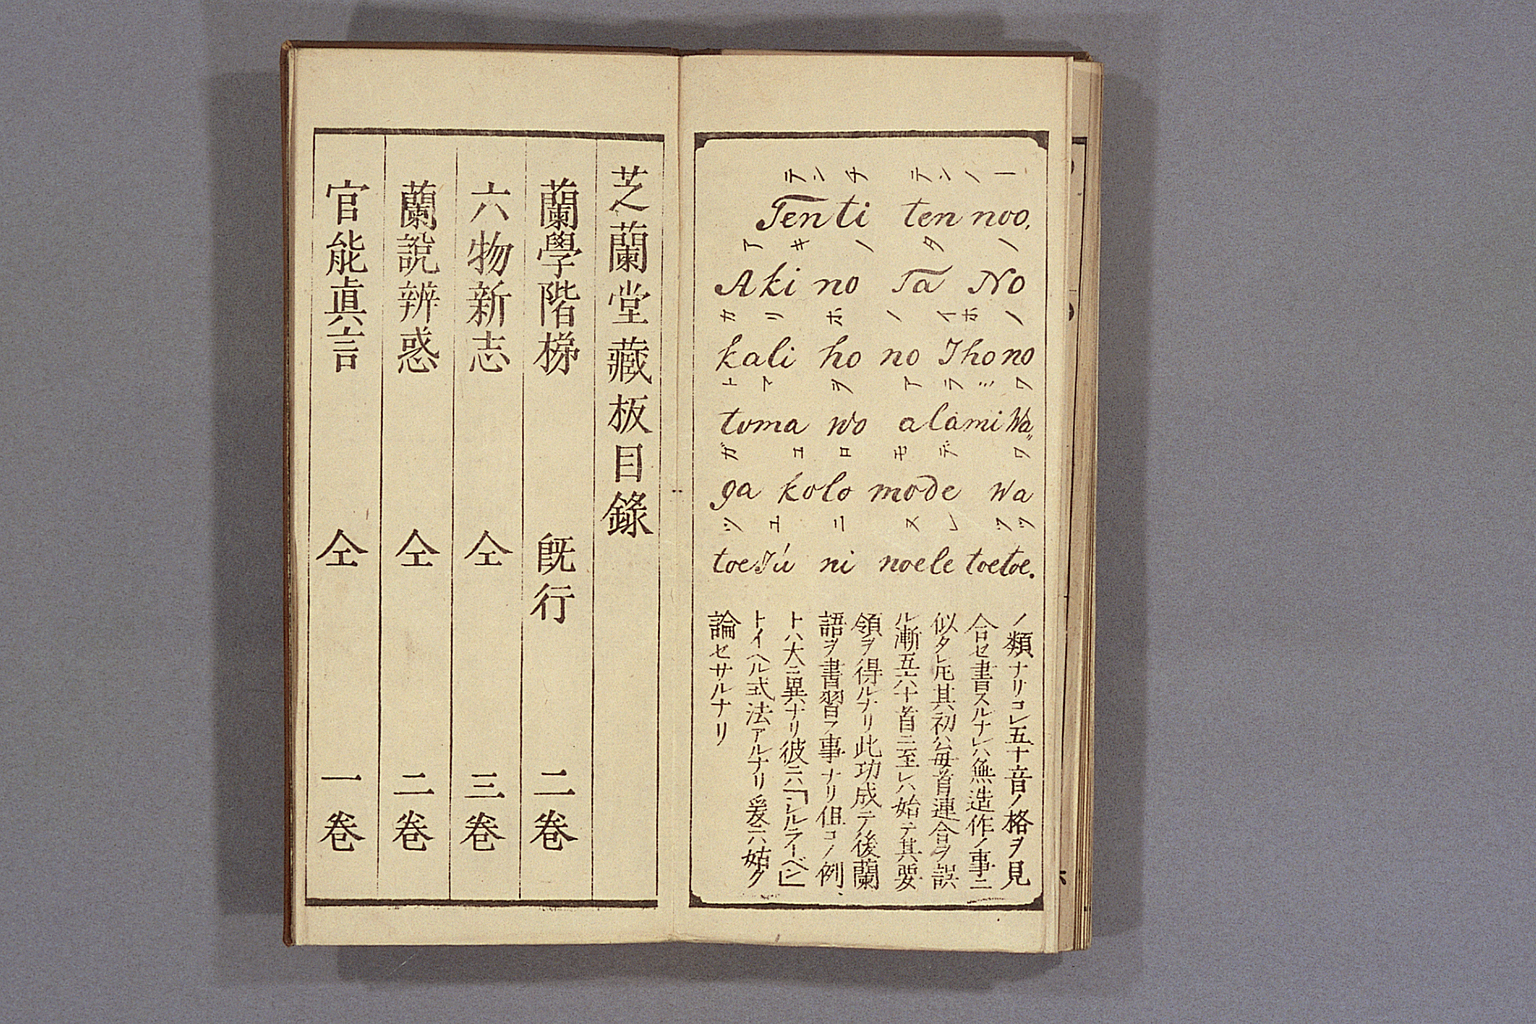 テンチ テンノー
Tenti ten noo.
アキノ タノ
Aki no Ta No
カリホノイホノ
kali ho no Ihono
トマヲアラミワ
toma wo alami Wa
ガコロモデワ
ga kolo mode Wa
ツユニヌレツツ
toeIú ni noele toetoe.
ノ類ナリコレ五十音ノ格ヲ見
合セ書スルナレハ無造作ノ事ニ
似タレ𪜈其初ハ毎首連合ヲ誤
ル漸五六十首ニ至レハ始テ其要
領ヲ得ルナリ此功成テノ後蘭
語ヲ書習フ事ナリ但コノ例
トハ大ニ異ナリ彼ニハ「シルラーベン」
トイヘル式法アルナリ爰ニハ姑ク
論セサルナリ
芝蘭堂藏板目錄
蘭學階梯 既行 二卷
六物新志 仝 三卷
蘭說辨惑 仝 二卷
官能眞言 仝 一卷